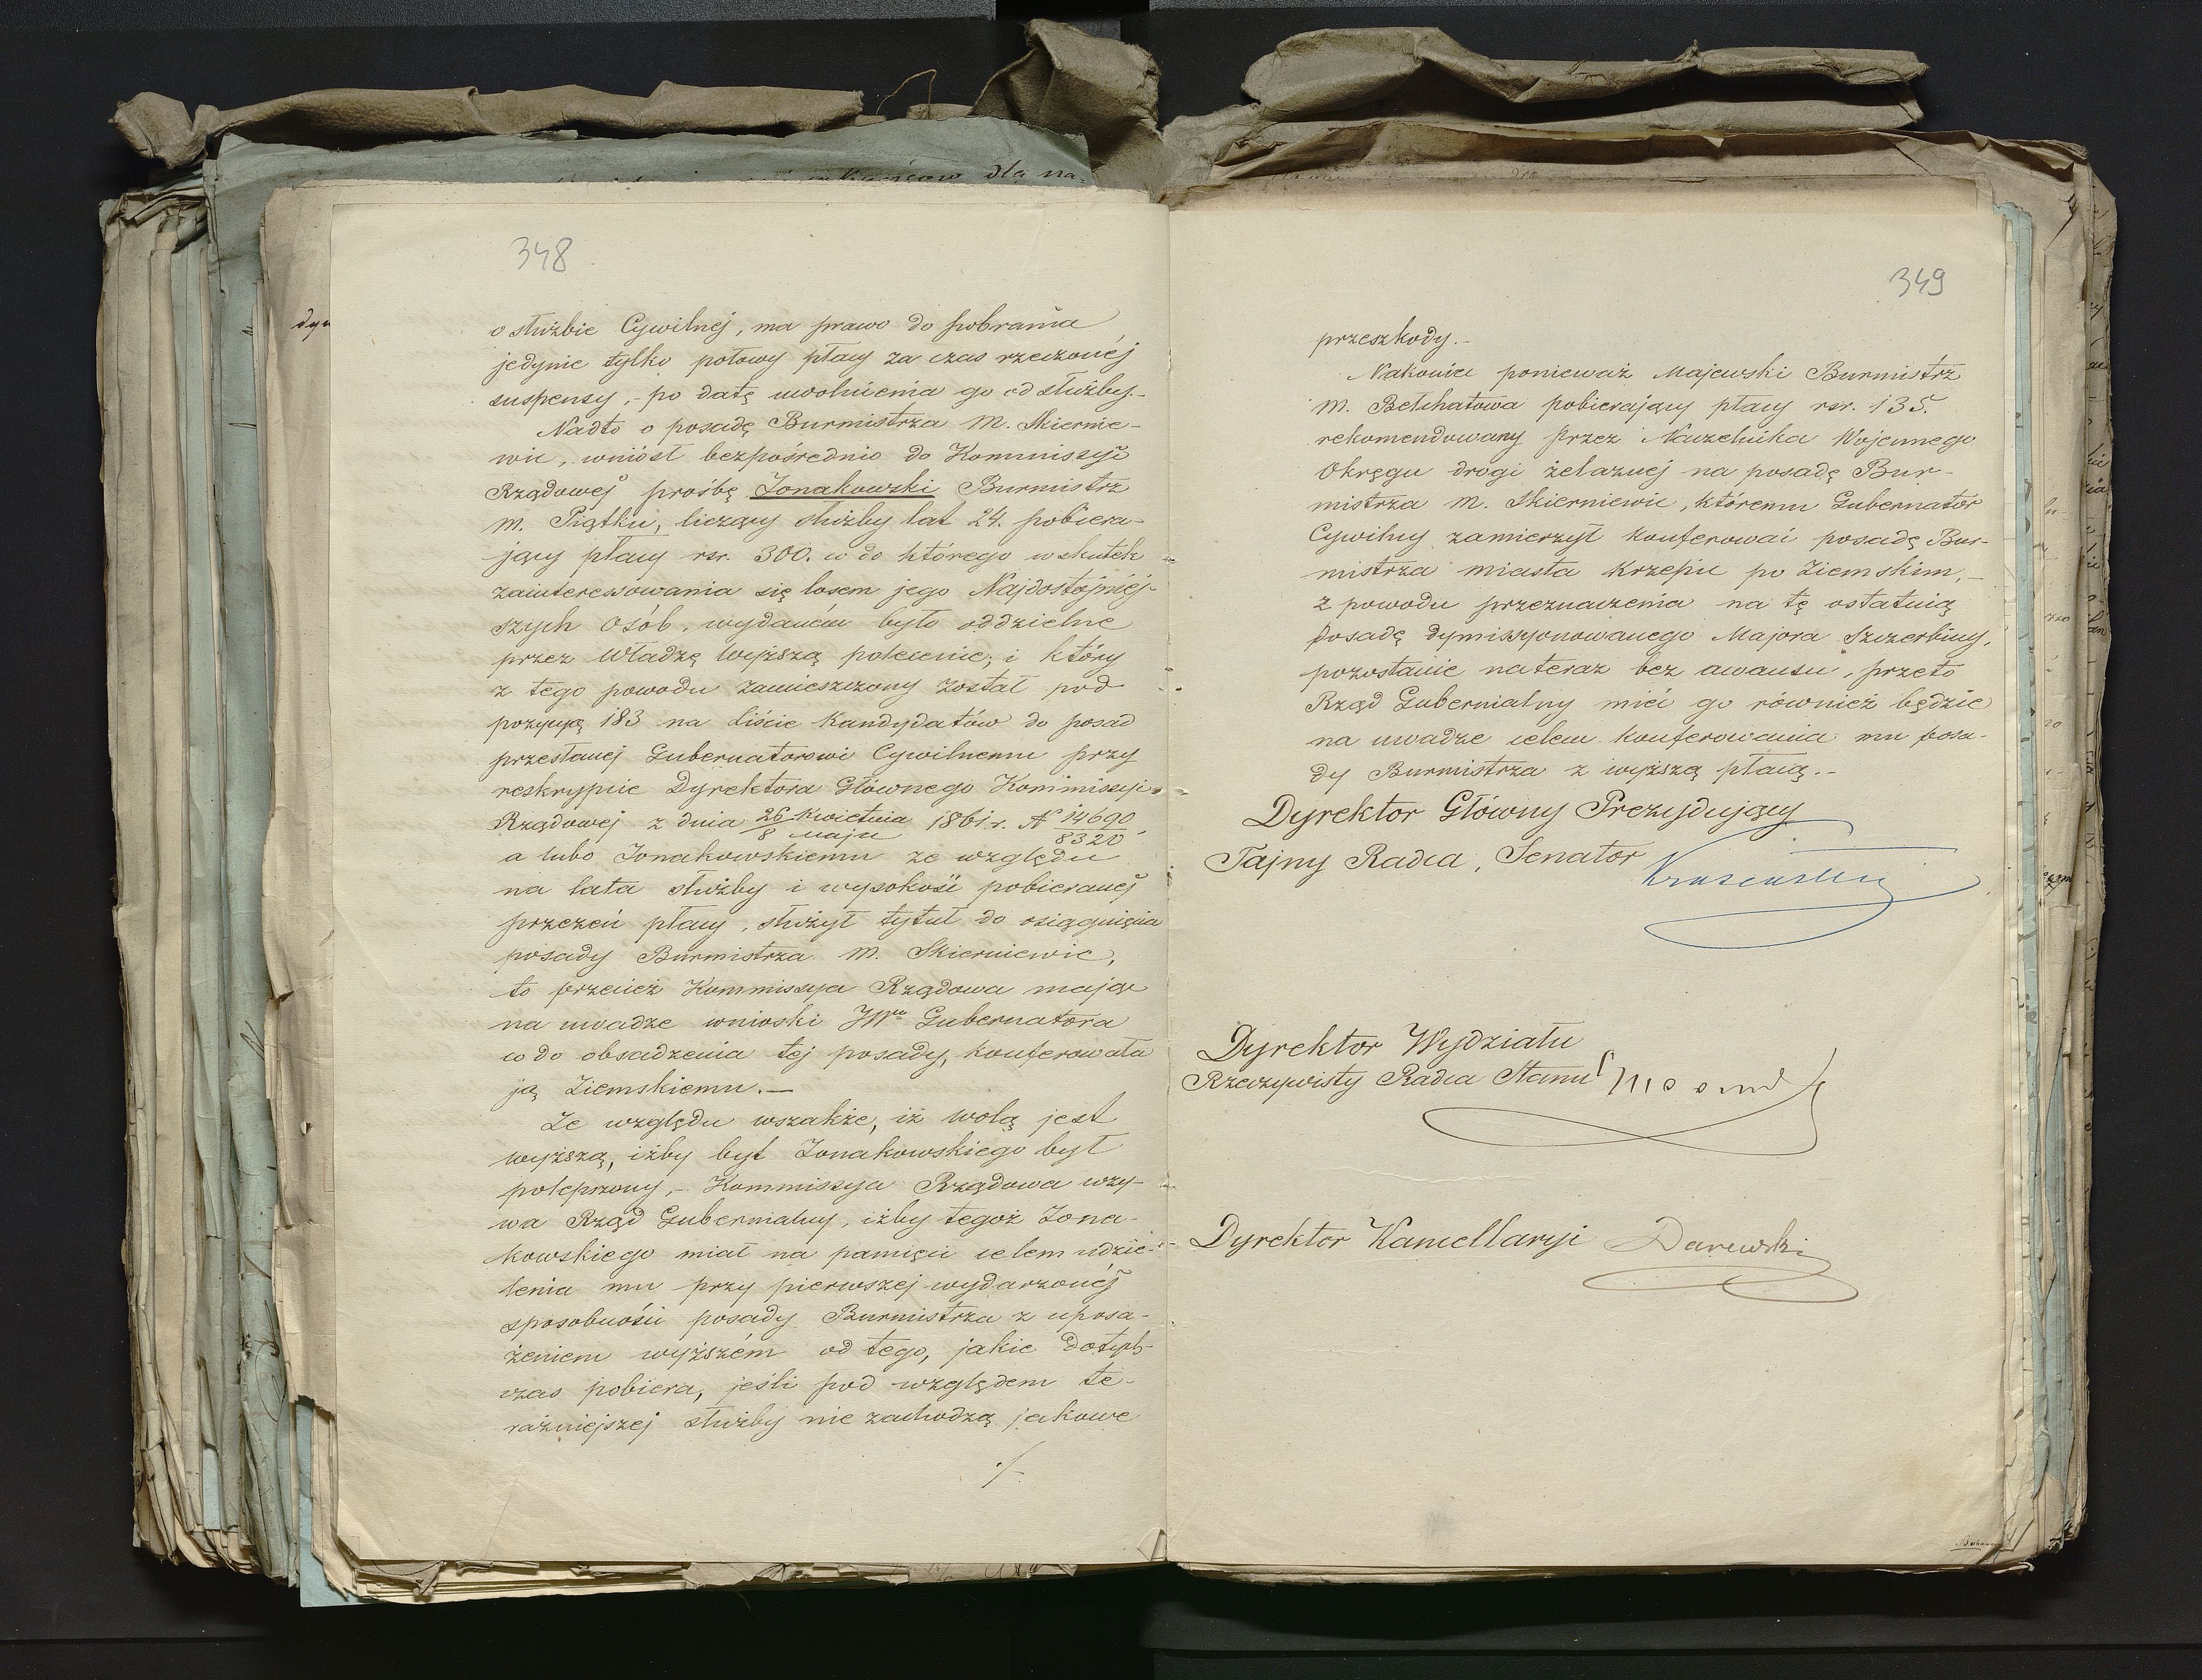 348
o służbie Cywilnéj, ma prawo do pobrania
jedynie tylko połowy płacy za czas rzeczonéj
suspensy, - po datę uwolnienia go od służby.-
Nadto o posadę Burmistrza M. Skiernie-
wic, wniósł bezpośrednio do Kommissyi
Rządowej prośbę Jonakowski Burmistrz
m. Piątku, liczący służby lat 24. pobiera-
jący płacy rsr. 300. co do którego wskutek
zainteressowania się losem jego Najdostojniéj-
szych Osób, wydaném było oddzielne
przez Władzę Wyższą polecenie; i który
z tego powodu zamieszczony został pod
pozycyą 183 na Liście Kandydatów do posad
przesłanej Gubernatorowi Cywilnemu przy
reskrypcie Dyrektora Głównego Kommissyi
Rządowej z dnia 26 Kwietnia / 8 maja 1861 r. N 14690 / 8320,
a lubo Jonakowskiemu ze względu
na lata służby i wysokość pobieranéj
przezeń płacy, służył tytuł do osiągnięcia
posady Burmistrza M. Skierniewic,
to przecież Kommissya Rządowa mając
na uwadze wnioski JWgo Gubernatora
co do obsadzenia téj posady, konferowała
ją Ziemskiemu.—
Ze względu wszakże, iż wolą jest
wyższą, iżby byt Jonakowskiego był
polepszony, - Kommissya Rządowa wzy-
wa Rząd Gubernialny, iżby tegoż Jona-
kowskiego miał na pamięci celem udzie-
lenia mu przy pierwszej wydarzonéj
sposobności posady Burmistrza z uposa-
żeniem wyższém od tego, jakie dotych-
czas pobiera, jeśli pod względem te-
raźniejszej służby nie zachodzą jakowe
./.
349
przeszkody.-
Nakoniec ponieważ Majewski Burmistrz
M. Bełchatowa pobierający płacy rsr. 135.
rekomendowany przez Naczelnika Wojennego
Okręgu drogi żelaznéj na posadę Bur-
mistrza M. Skierniewic, któremu Gubernator
Cywilny zamierzył konferować posadę Bur-
mistrza miasta Krzepic po Ziemskim,-
z powodu przeznaczenia na tę ostatnią
posadę dymissyonowanego Majora Szczerbiny,
pozostanie nateraz bez awansu, przeto
Rząd Gubernialny mieć go również będzie
na uwadze celem konferowania mu posa-
dy Burmistrza z wyższą płacą.-
Dyrektor Główny Prezydujący
Tajny Radca, Senator
Dyrektor Wydziału
Rzeczywisty Radca Stanu
Dyrektor Kancellaryi Darewski